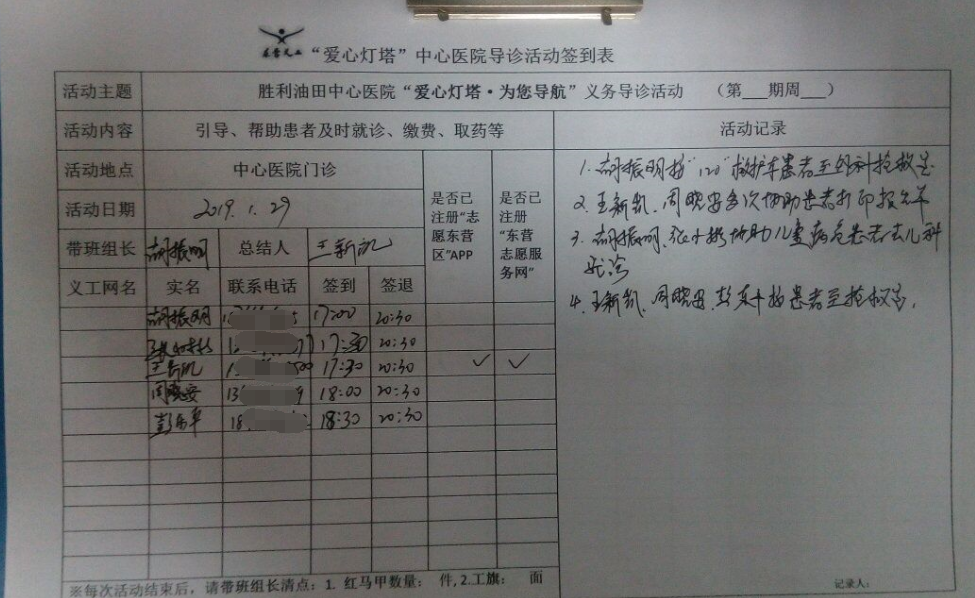 东营义工 "爱心灯塔"中心医院导诊活动签到表
活动主题 胜利油田中心医院"爱心灯塔·为您导航"义务导诊活动 （第___期周___）
活动内容 引导、帮助患者及时就诊、缴费、取药等 活动记录
活动地点 中心医院门诊
活动日期 2019.1.29
是否已注册"志愿东营区"APP
是否已注册"东营志愿服务网"
带班组长 胡振明 总结人 王新凯
义工网名 实名 联系电话 签到 签退
胡振明 17:00 20:30
17:30 20:30
王新凯 17:30 20:30 ✓ ✓
周晓安 13 9 18:00 20:30
彭 18 18:30 20:30
1. 胡振明 "120"救护车患者至 科抢救室
2. 王新凯、周晓安多次协助患者打印报告单
3. 胡振明、 协助儿童病危患者去儿科
就诊
4. 王新凯、周晓安、彭 患者至抢救室.
※每次活动结束后，请带班组长清点：1. 红马甲数量： 件,2.工旗： 面
记录人：